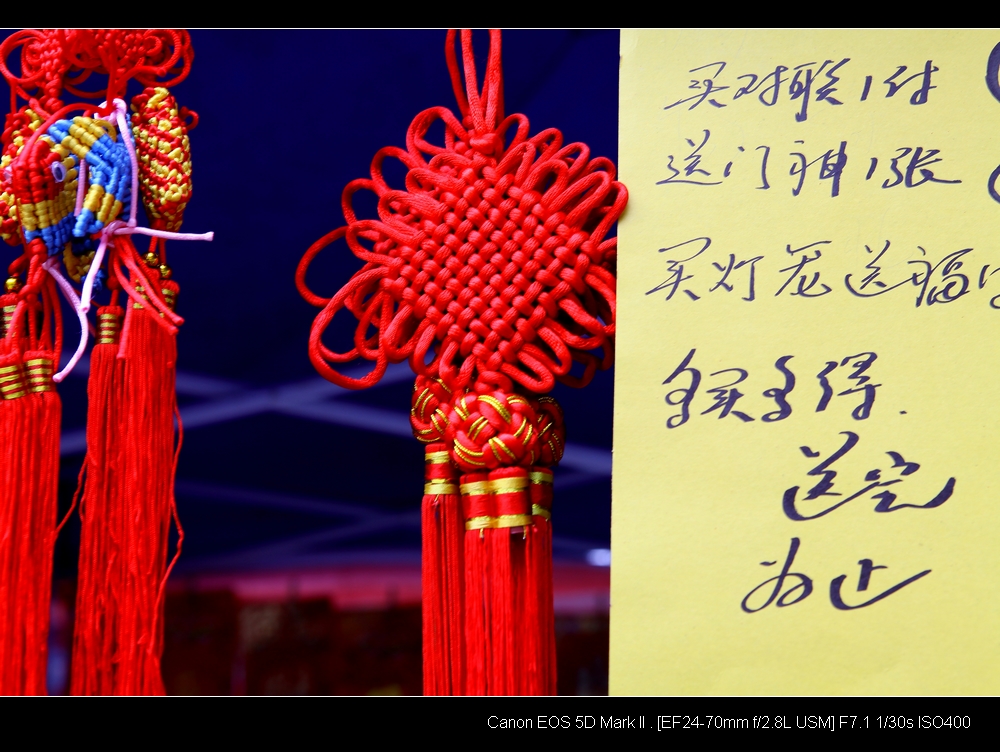 买对联1付
送门神1张
买灯笼送福
多买多得.
送完
为止
Canon EOS 5D Mark II . [EF24-70mm f/2.8L USM] F7.1 1/30s ISO400